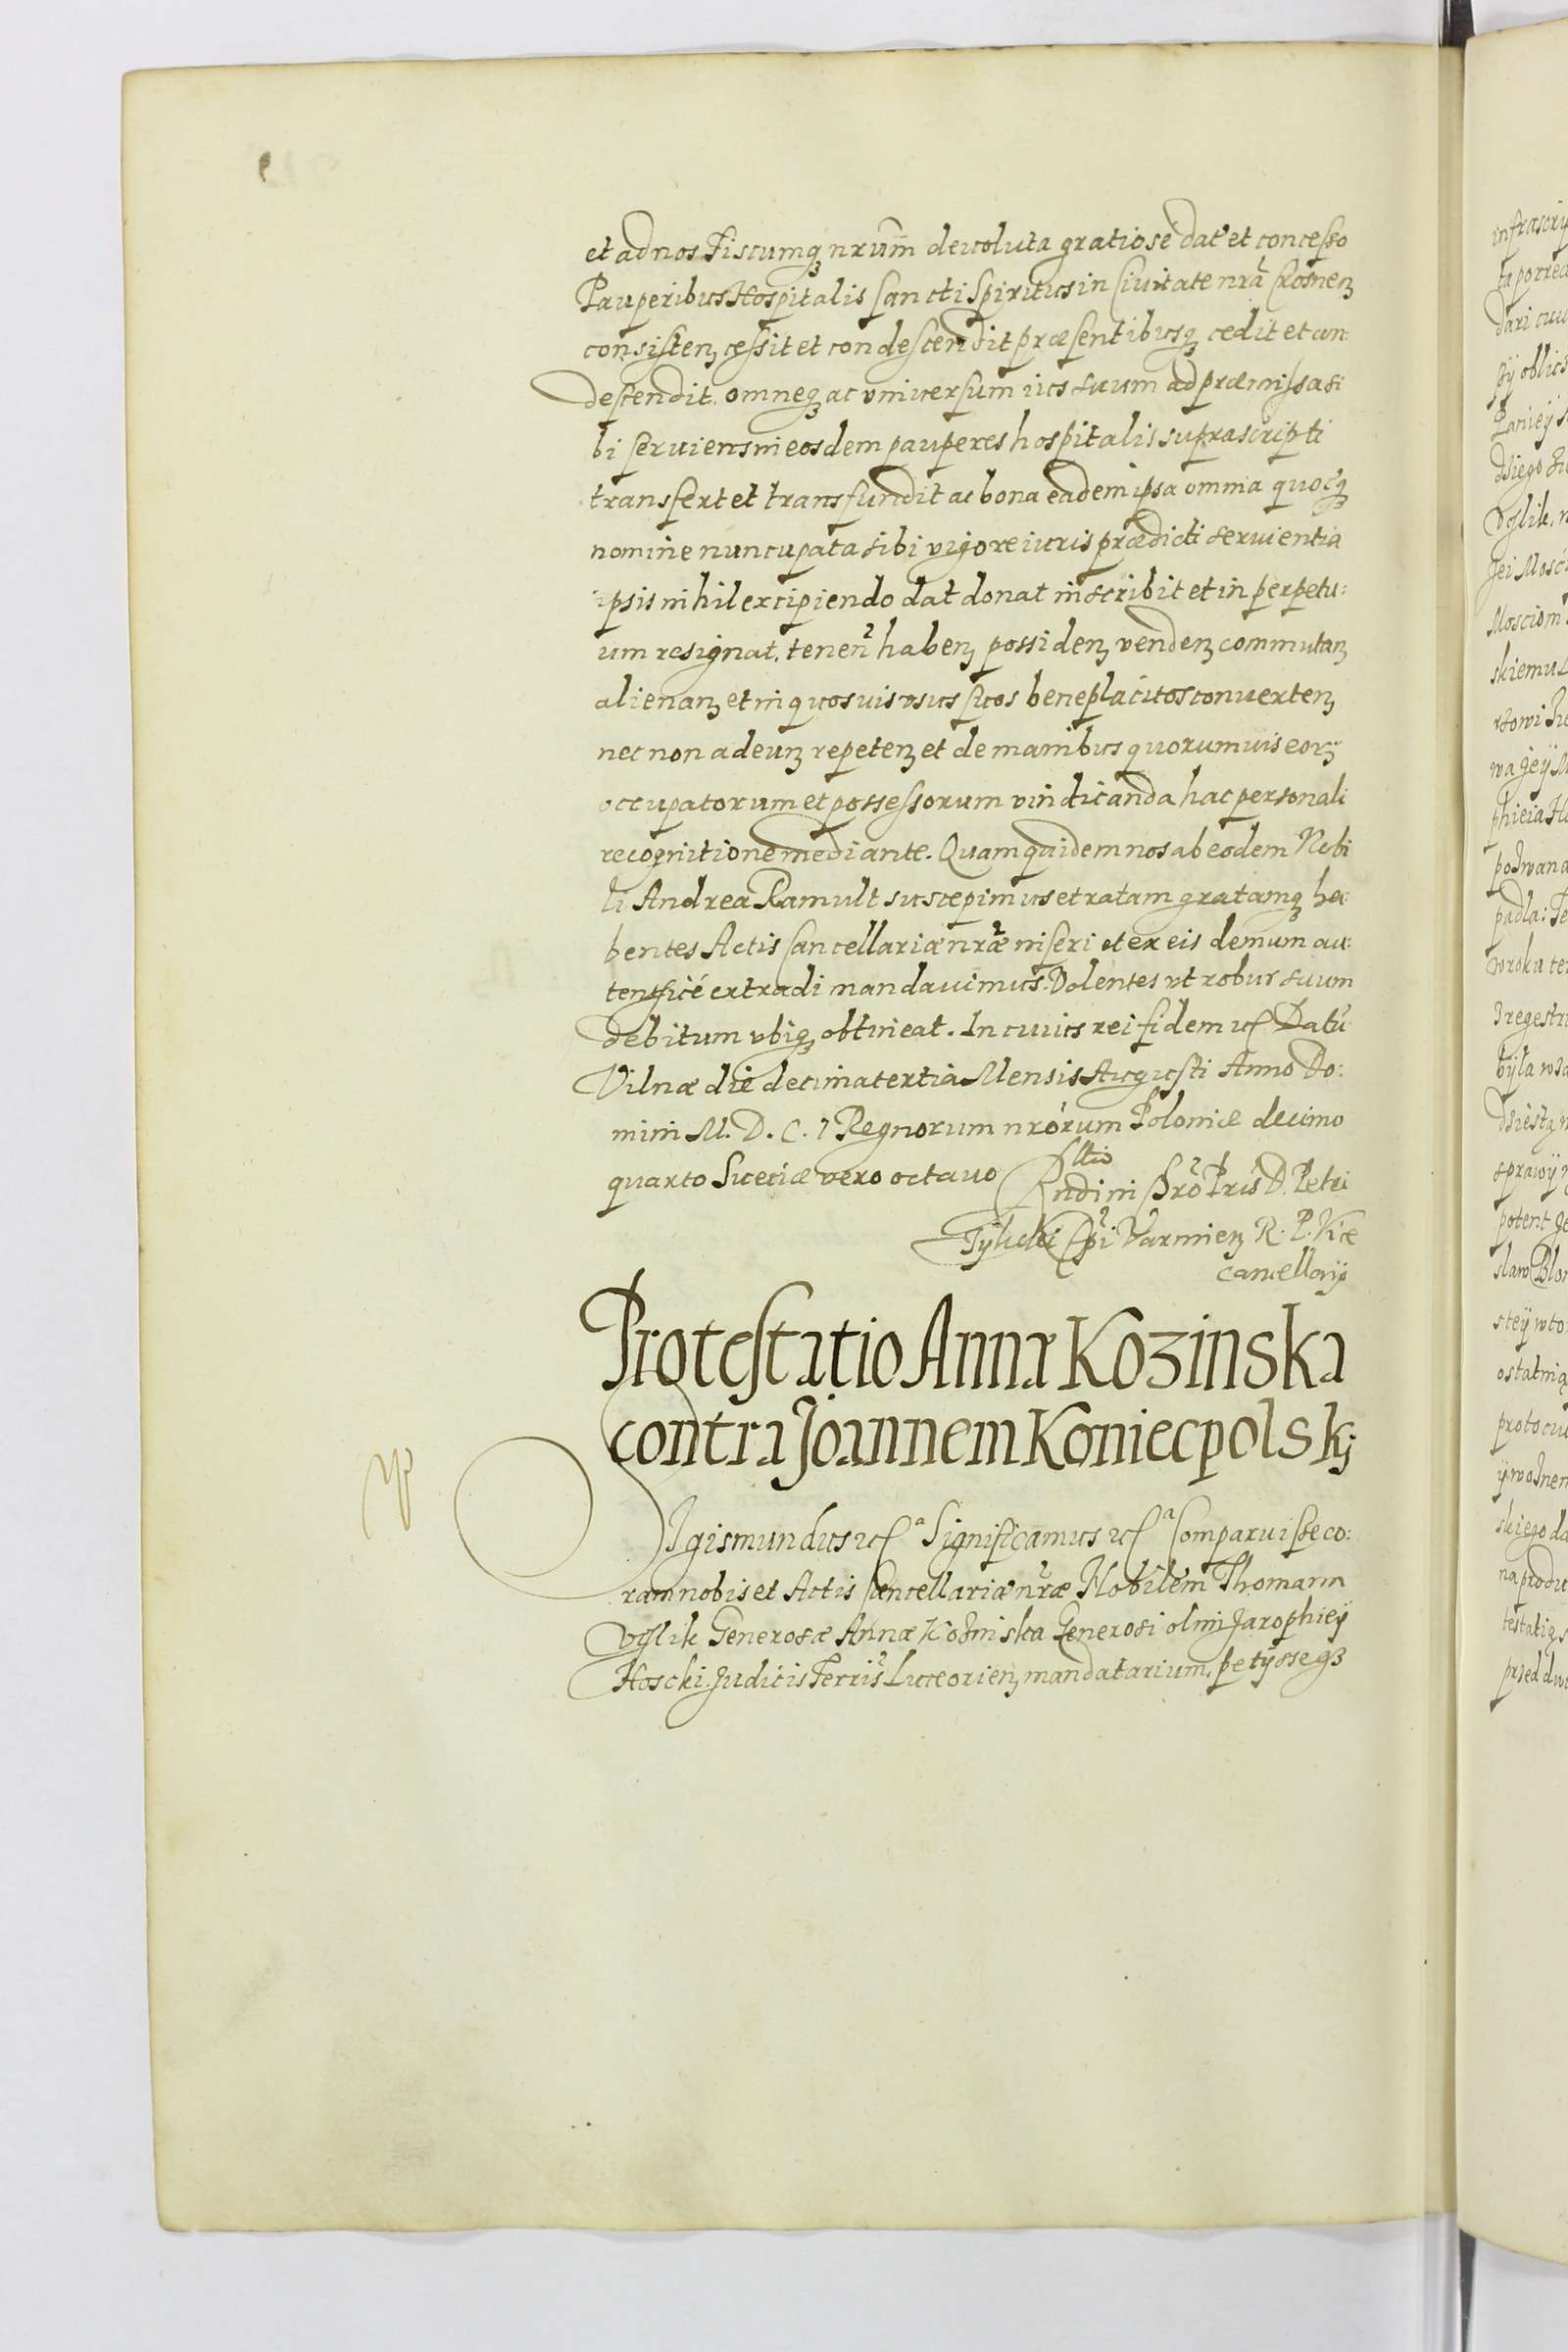 et ad nos Fiscumq nrum deuoluta gratiosé dat et concesso
Pauperibus Hospitalis Sancti Spiritus in Ciuitate nra Crosnen
consisten cessit et condescendit præsentibusq cedit et con
descendit. omneq ac vniuersum ius suum ad præmissa si
bi seruiens in eosdem pauperes hospitalis suprascripti
transfert et transfundit ac bona eadem ipsa omnia quocq
nomine nuncupata sibi vigore iuris prædicti seruientia
ipsis nihil excipiendo dat donat inscribit et in perpetu:
um resignat. tenen haben possiden venden commutan
alienan et in quosuis vsus suos beneplacitos conuerten
nec non adeun repeten et de manibus quorumuis eorz
occupatorum et possessorum vindicanda hac personali
recognitione mediante. Quam quidem nos ab eodem Nobi
li Andrea Ramult suscepimus et ratam gratamq ha
bentes Actis Cancellariæ nræ inseri et ex eis demum au:
tenticé extradi mandauimus. Volentes vt robur suum
debitum vbiq obtineat. In cuius rei fidem etc Datū
Vilnæ die decima tertia Mensis Augusti Anno Do:
mini M. D. C. 1 Regnorum nrorum Poloniæ decimo
quarto Sueciæ vero octauo
Rndi in Chro Pris D. Petri
Tylicki Epi Varmien R. P. Vice
cancellarij
Protestatio Anna Kozinska
contra Joannem Koniecpolskj
Sigismundus etc a Significamus etc a Comparuisse co:
ram nobis et Actis Cancellariæ nræ Nobilem Thomam
Vglik Generosæ Annæ Koźinska Generosi olim Jarophieÿ
Hoscki Judicis Terris Luceorien mandatarium, petÿsseqz